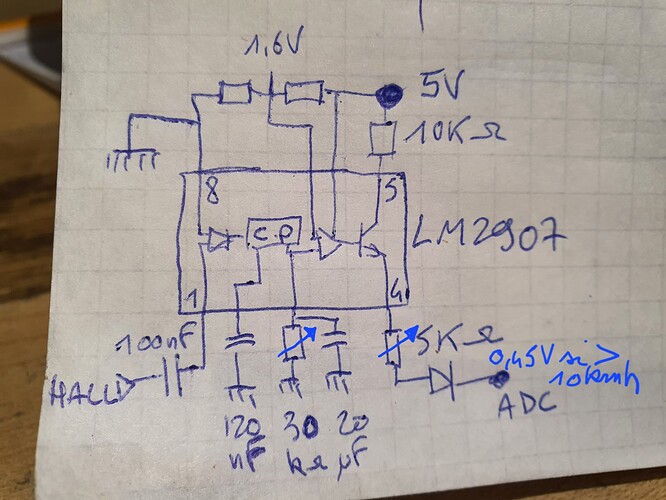 1,6V
5V
10KΩ
8
5
C.P
LM2907
1
4
100nF
5KΩ
0,45V si >
10kmh
HALL
ADC
120
nF
30
kΩ
20
µF